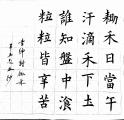 耡禾日當午
汗滴禾下土
誰知盤中湌
粒粒皆辛苦